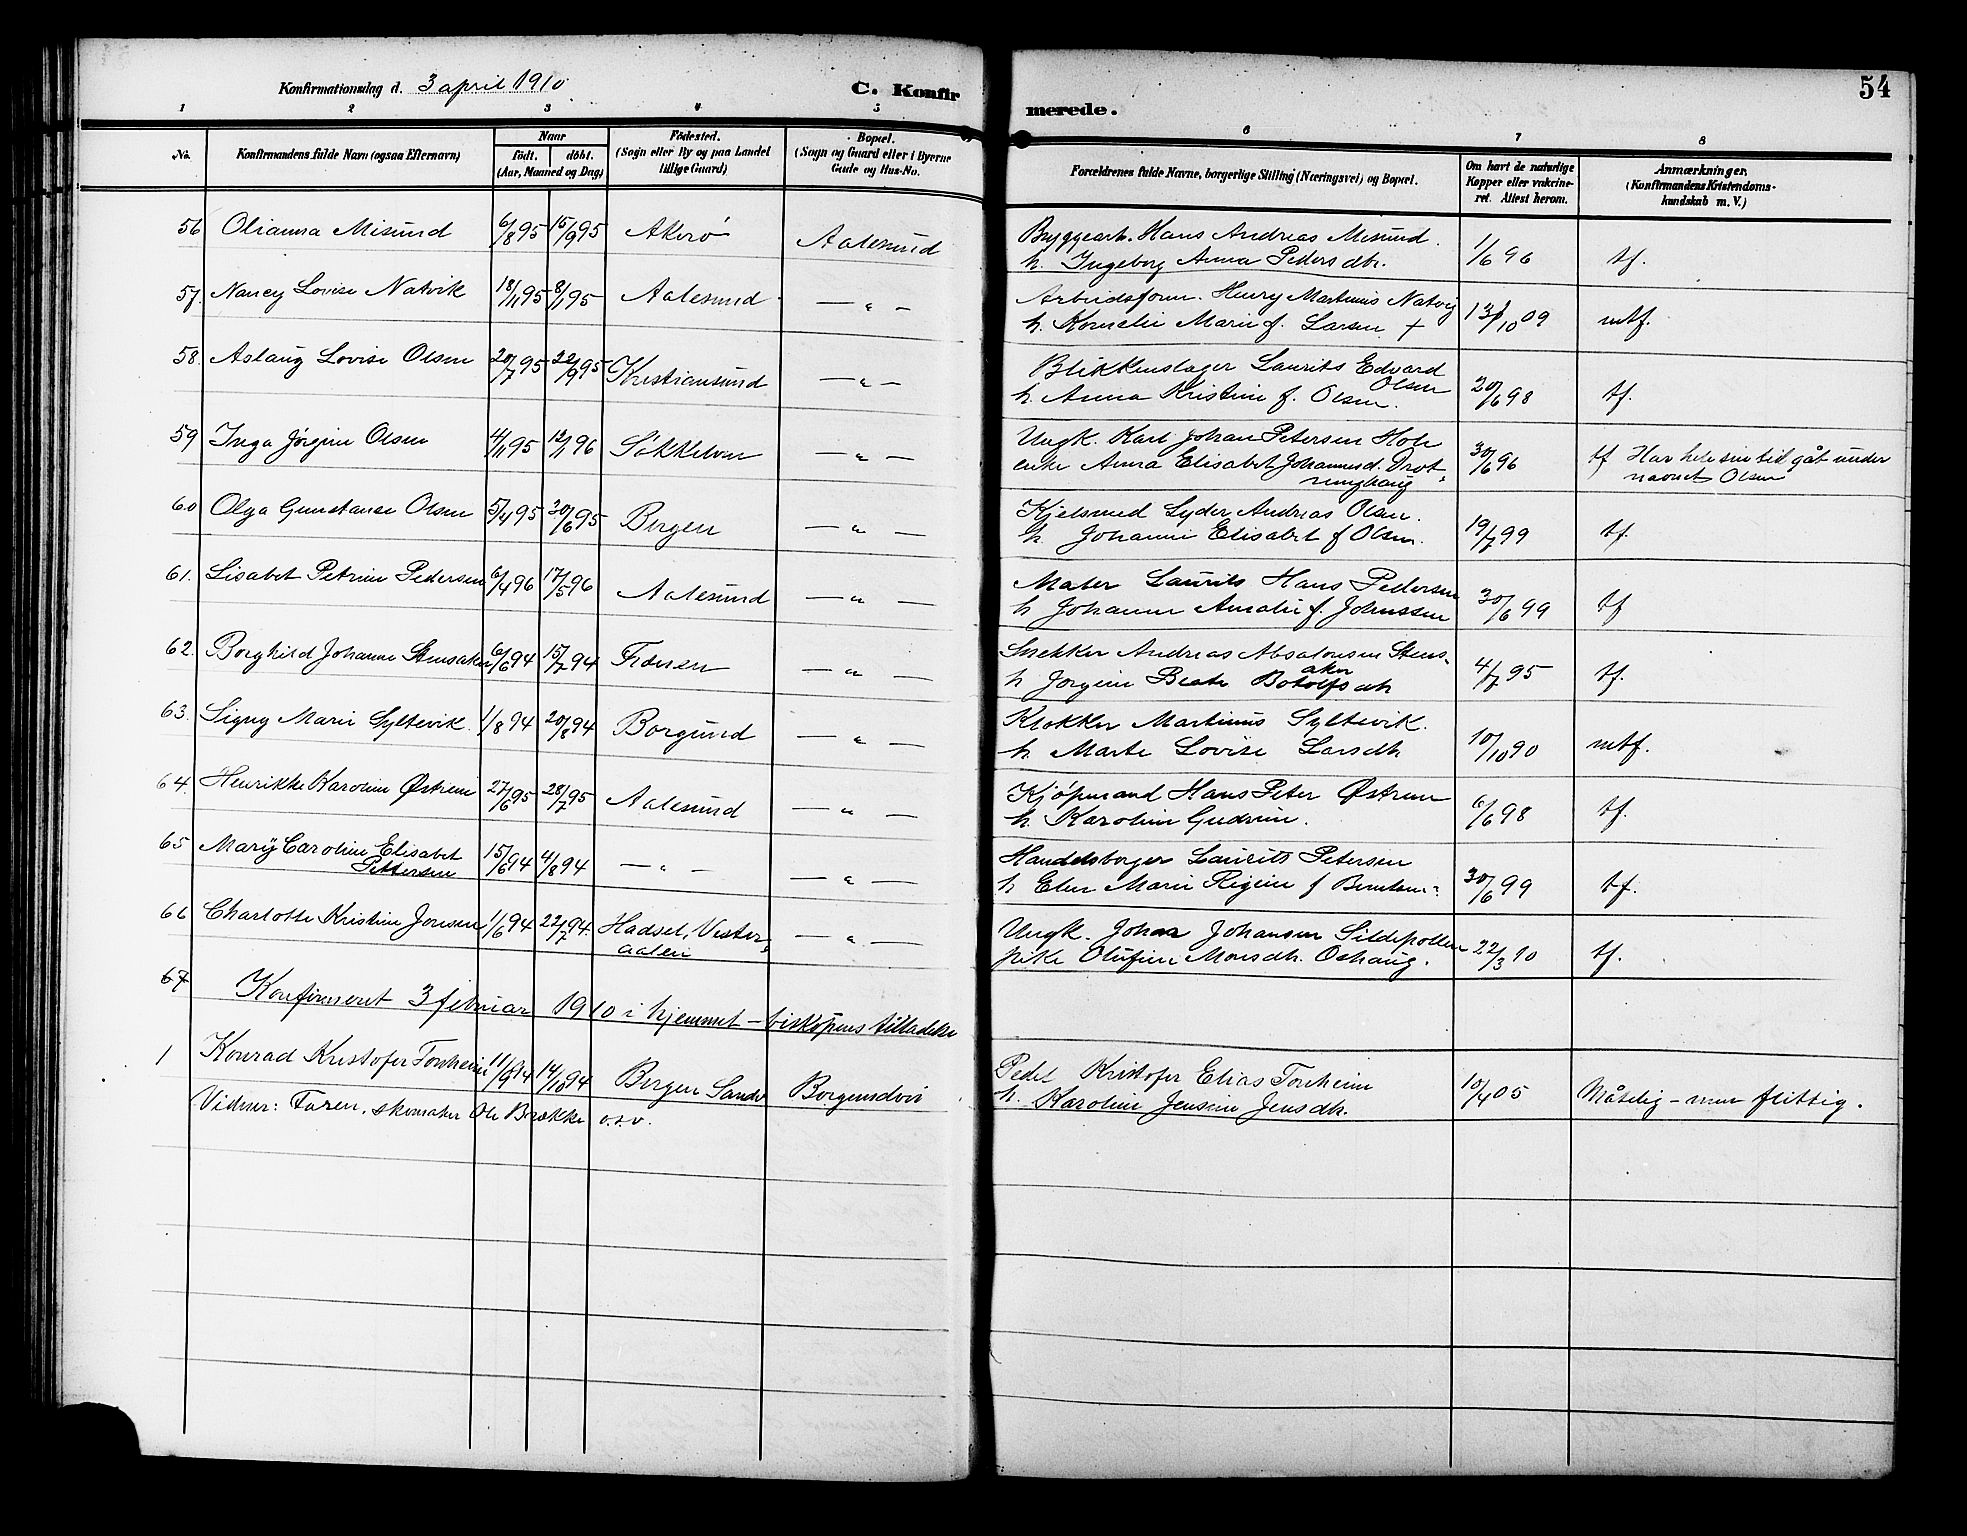 54
Konfirmationsdag d. 3 april 1910
C. Konfir
merede.
1 2 3 4 5 6 7 8
No.
Konfirmandens fulde Navn (ogsaa Efternavn)
Naar
født. døbt.
(Aar, Maaned og Dag)
Fødested.
(Sogn eller By og paa Landet
tillige Gaard)
Bopæl.
(Sogn og Gaard eller i Byerne
Gade og Hus-No.
Forældrenes fulde Navne, borgerlige Stilling (Næringsvei) og Bopæl.
Om havt de naturlige
Kopper eller vakcine-
ret. Attest herom.
Anmærkninger.
(Konfirmandens Kristendoms-
kundskab m. V.)
56 Olianna Misund 6/8 95 15/9 95 Akerø Aalesund
Byggearb. Hans Andreas Misund.
h. Ingeborg Anna Pedersdtr. 1/6 96 tf.
57. Nancy Lovise Natvik 18/11 95 8/1 95 Aalesund — " —
Arbeidsform. Henry Martinus Natvig
h. Kornelie Marie f. Larsen + 13/10 09 mtf.
58. Aslaug Lovise Olsen 20/7 95 22/9 95 Kristiansund — " —
Blikkenslager Laurits Edvard
Olsen
h. Anna Kristine f. Olsen. 20/6 98 tf.
59 Inga Jørgine Olsen 4/11 95 12/1 96 Søkkelven — " —
Ungk. Karl Johan Petersen Hole
enke Anna Elisabet Johannesd. Drot-
ninghaug 30/6 96 tf Har hele sin tid gåt under
navnet Olsen
60 Olga Gunstanse Olsen 5/4 95 30/6 95 Bergen — " —
Kjelsmed Lyder Andreas Olsen.
h. Johanne Elisabet f Olsen. 19/7 99 tf.
61. Lisabet Petrine Pedersen 6/4 96 17/5 96 Aalesund — " —
Maler Laurits Hans Pedersen
h Johanne Amalie f. Johnssen 30/6 99 tf
62. Borghild Johanne Stensaker 6/6 94 15/7 94 Fiøren — " —
Snekker Andreas Absalonsen Stens-
aker
h Jørgine Beate Botolfsdtr 4/7 95 tf.
63. Signy Marie Syltevik 1/8 94 20/8 94 Borgund — " —
Klokker Martinus Syltevik.
h. Marte Lovise Larsdtr. 10/10 90 mtf.
64. Henrikke Karoline Østrem 27/6 95 28/7 95 Aalesund — " —
Kjøpmand Hans Peter Østrem
h. Karoline Gudrine. 6/6 98 tf.
65 Mary Caroline Elisabet
Pettersen 15/6 94 4/8 94 — " — — " —
Handelsborger Laurits Petersen
h Elen Marie Regine f 30/6 99 tf.
66 Charlotte Kristine Jonsen 1/6 94 22/7 94. Hadsel, Vester-
aalen — " —
Ungk. Johan Johansen Sildepollen
pike Olufine Monsdtr. Oshaug. 22/3 10 tf.
67
Konfirmeret 3 februar 1910 i hjemmet – biskopens tilladelse
1 Konrad Kristofer Torsheim 11/9 94 14/10 94 Bergen Sandv Borgensdvir
Pedel Kristofer Elias Torsheim
h. Karoline Jensine Jensdtr. 10/4 05 Måtelig – men flittig.
Vidner: Faren, skomaker Ole Brække o.s.v.